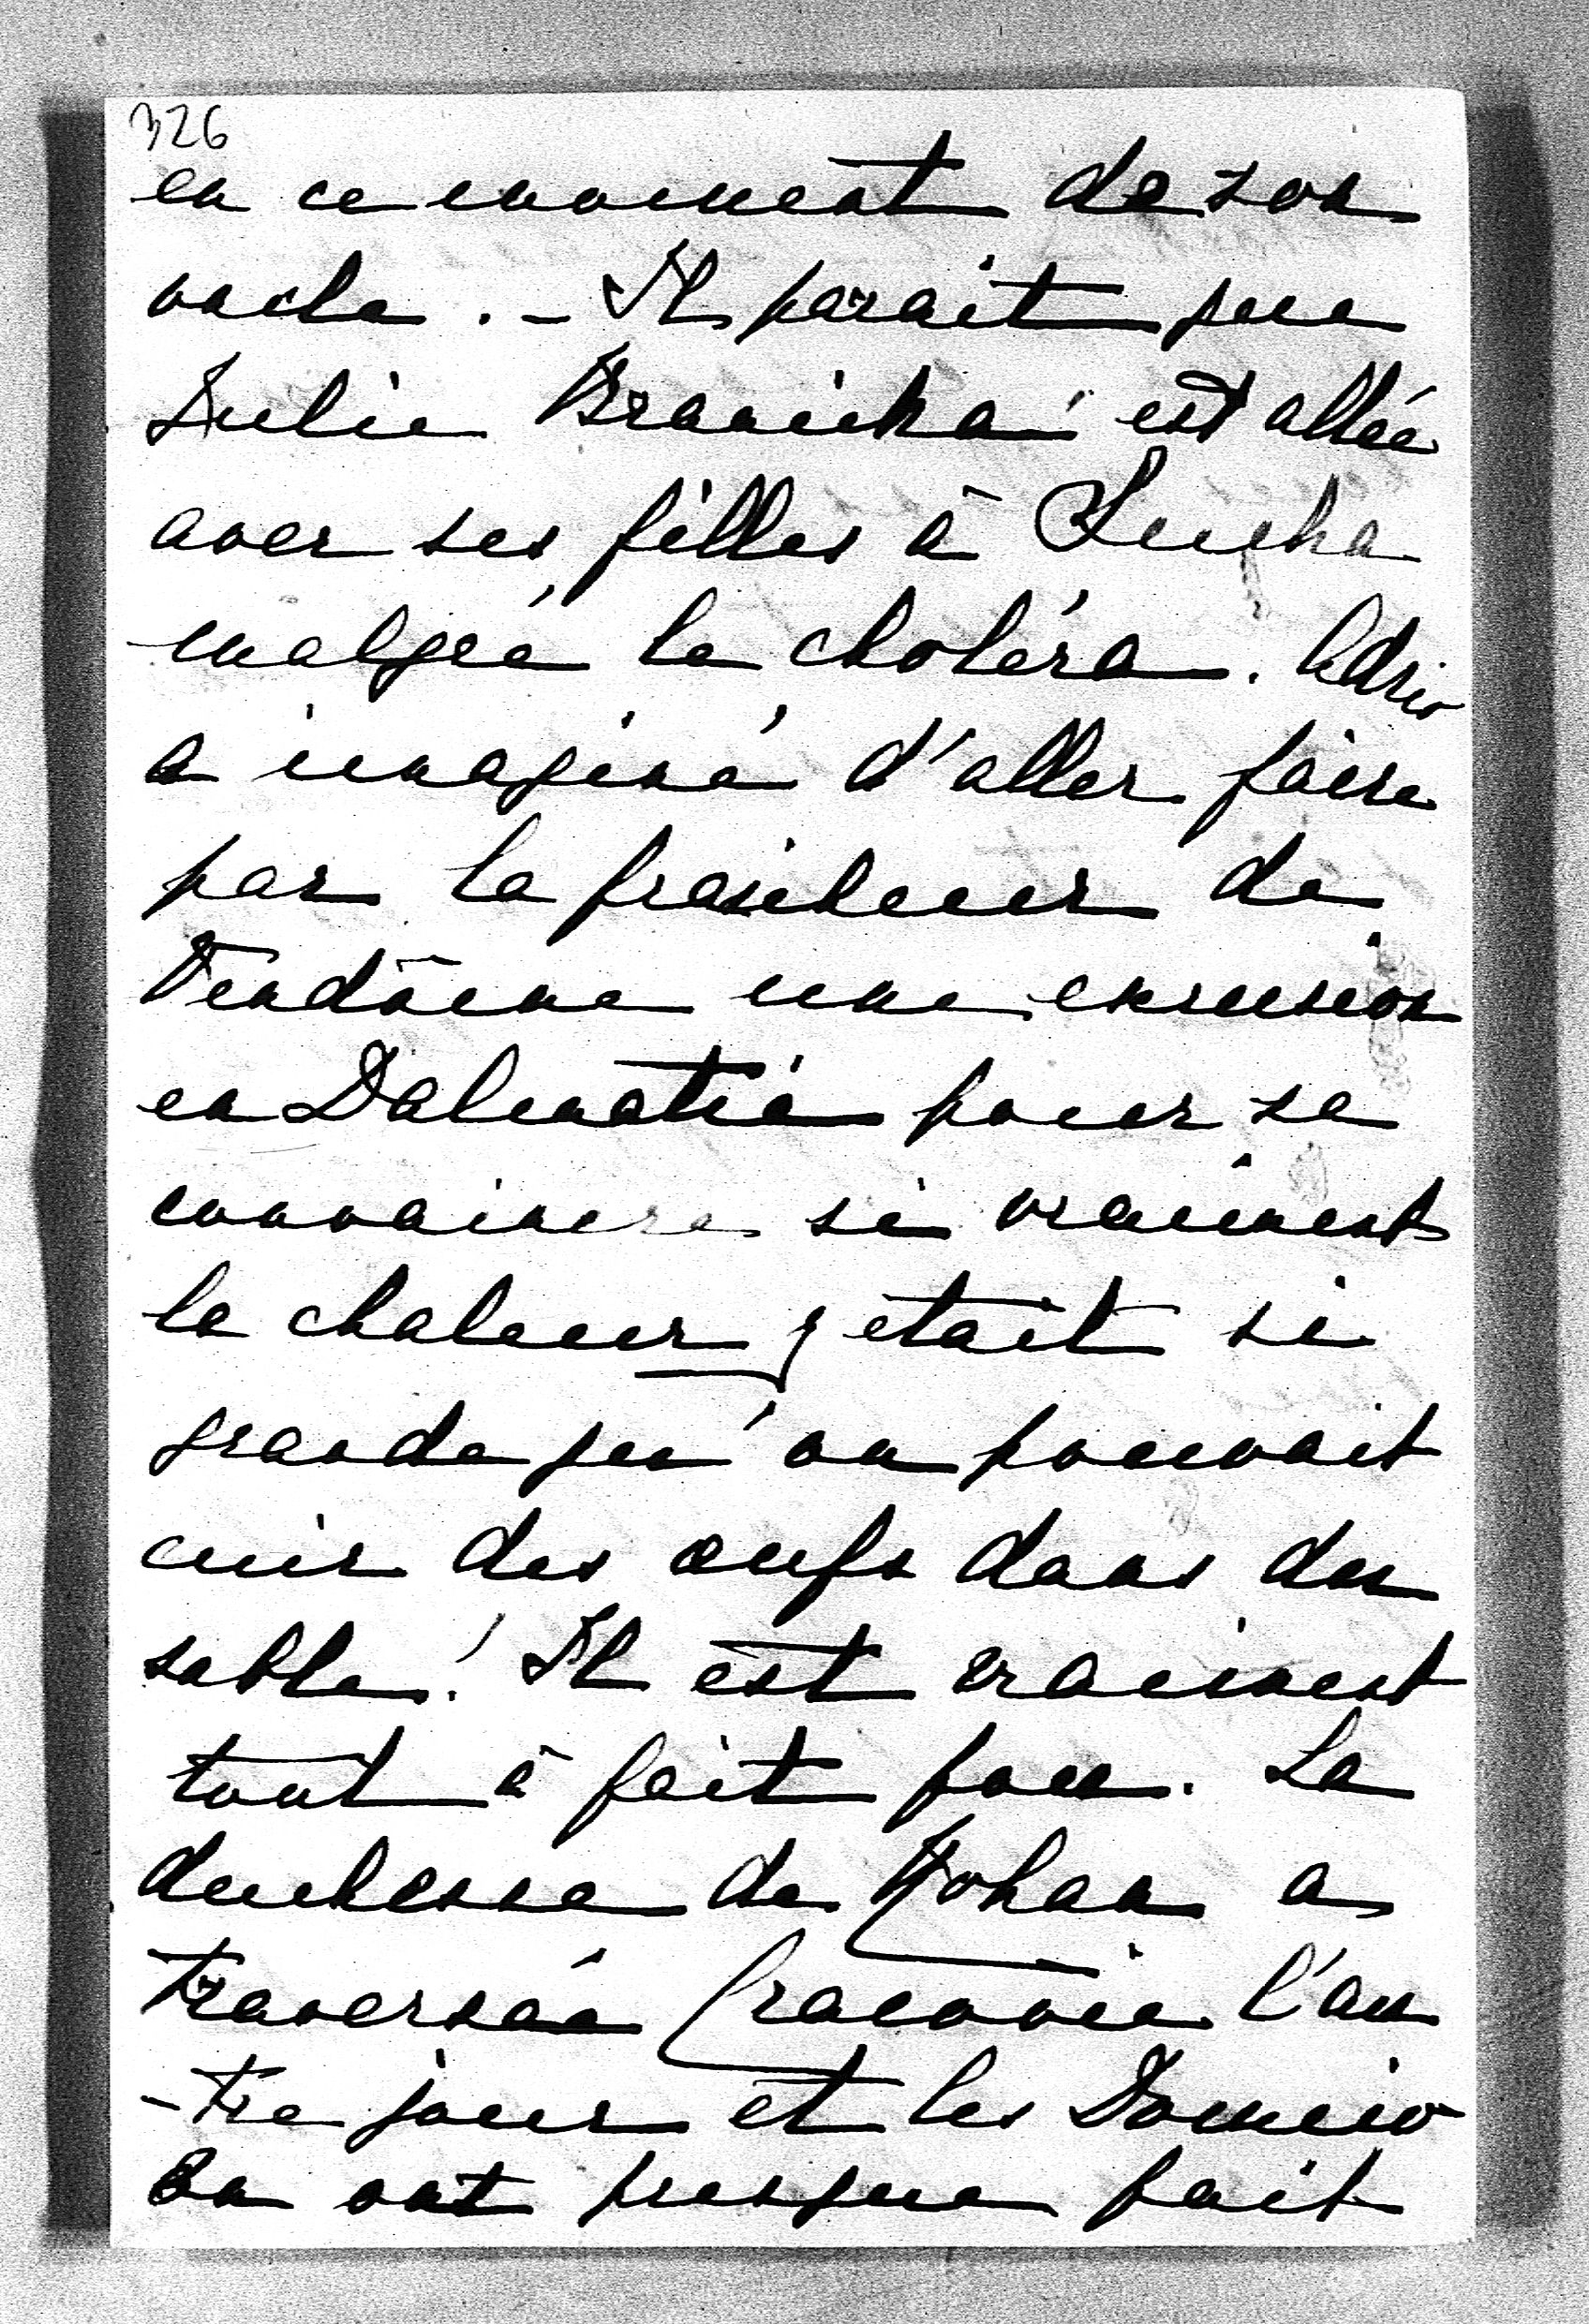 326
en ce moment de son
oncle. - Il parait que
Julie Branicka est allée
avec ses filles à Sucha
malgré le choléra. Adzio
a imaginé d'aller faire
par la fraicheur de
Vendôme une excursion
en Dalmatie pour se
convaincre si vraiment
la chaleur y etait si
grande qu'on pouvait
cuir des œufs dans du
sable! Il est vraiment
tout à fait fou. La
duchesse de Rohan a
traversée Cracovie l'au
-tre jour et les Domcio
en ont presque fait